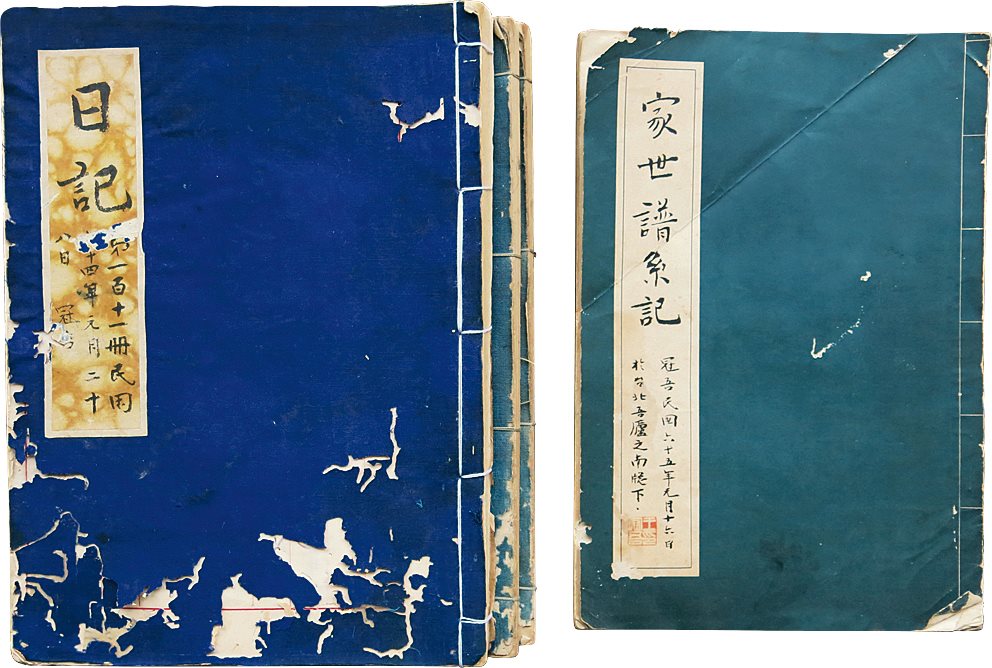 日記
第一百十一冊民國
十四年元月二十
八日 冠吾
家世譜系記
冠吾民國六十五年元月十六日
於台北吾廬之南窓下.